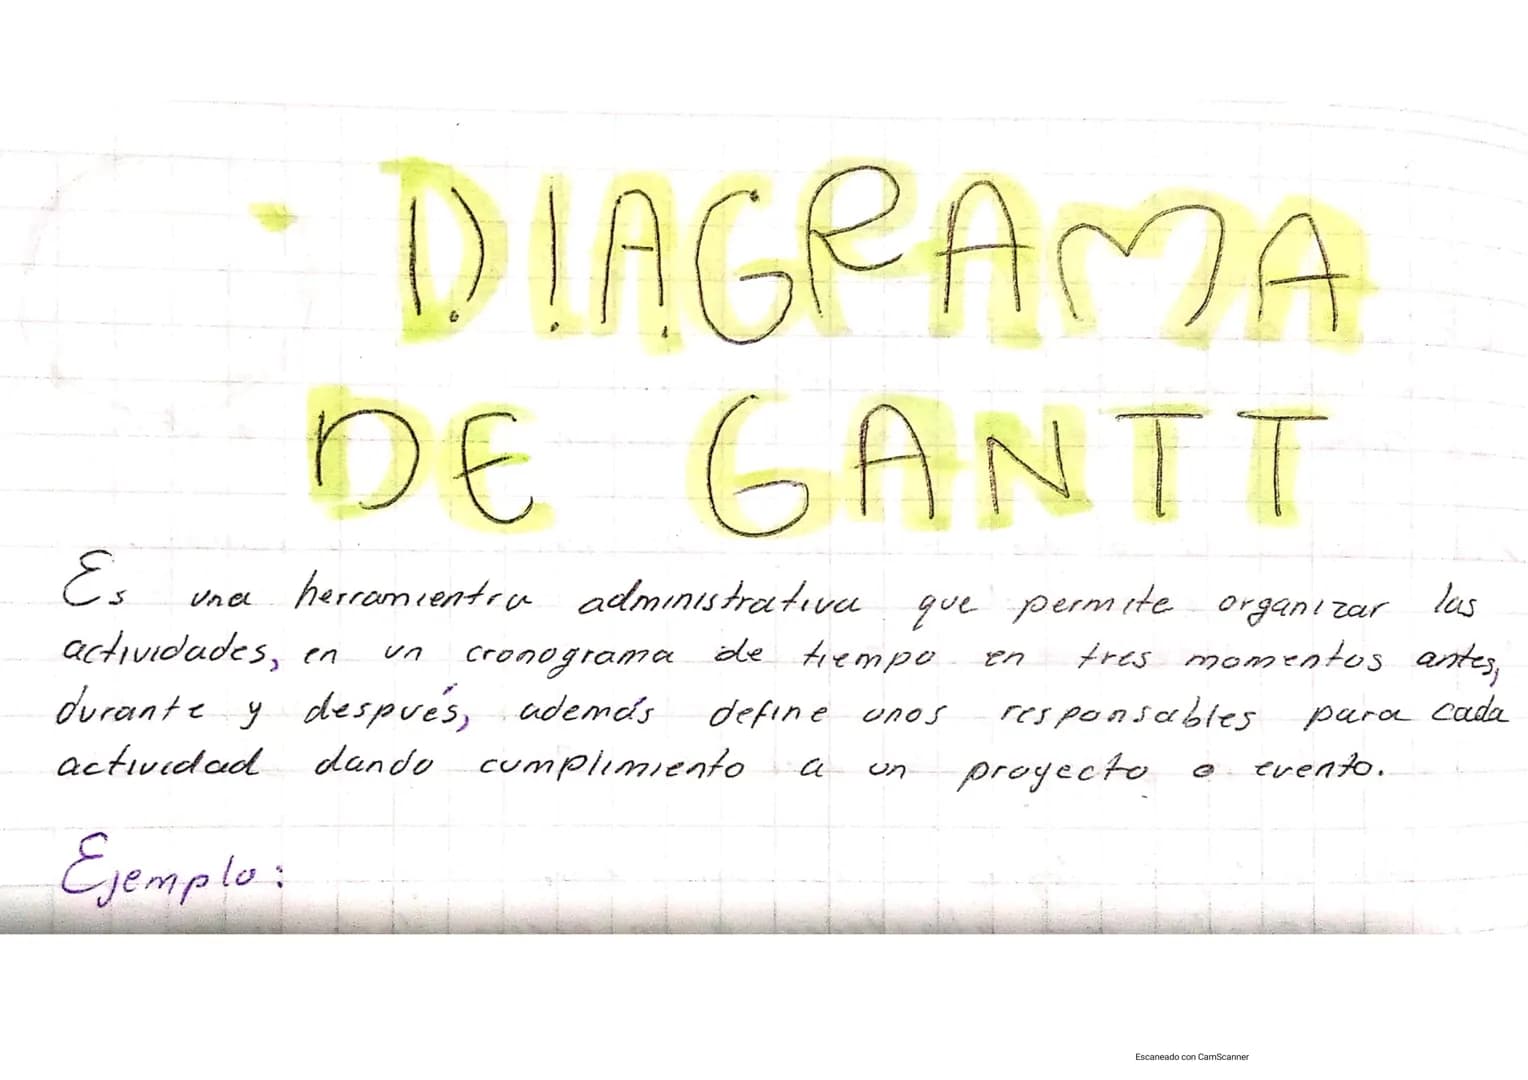 · DIAGRAMA
DE GANTT
Es una herramientra administrativa que permite organizar las
actividades, en un cronograma de tiempo en tres momentos antes,
durante y después, además define unos responsables para cada
actividad dando cumplimiento a un proyecto o evento.
Ejemplo:
Escaneado con CamScanner